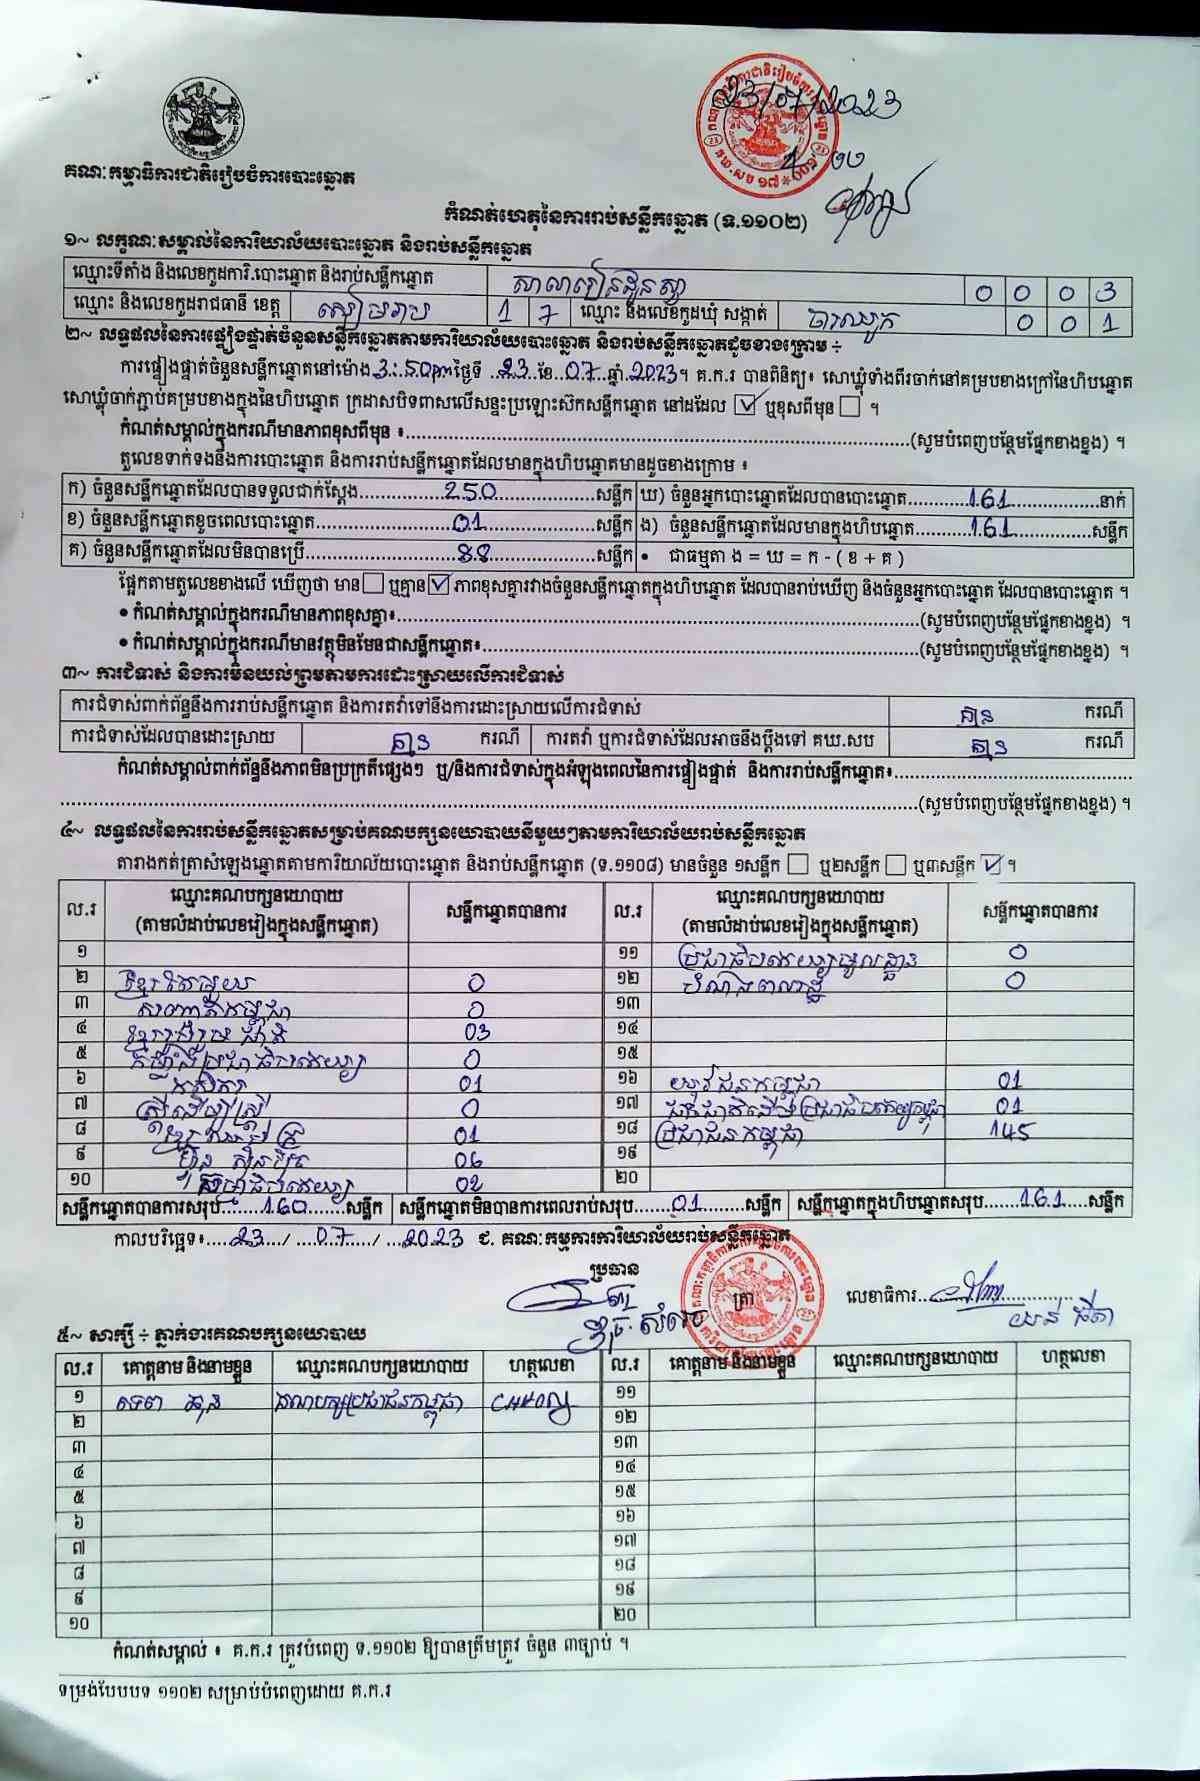 23/07/2023
គណៈកម្មាធិការជាតិរៀបចំការបោះឆ្នោត
កំណត់ហេតុនៃការរាប់សន្លឹកឆ្នោត (ទ.១១០២)
១~ លក្ខណៈសម្គាល់នៃការិយាល័យបោះឆ្នោត និងរាប់សន្លឹកឆ្នោត
ឈ្មោះទីតាំង និងលេខកូដការិ.បោះឆ្នោត និងរាប់សន្លឹកឆ្នោត សាលារៀនដូនស្វា 0 0 0 3
ឈ្មោះ និងលេខកូដរាជធានី ខេត្ត សៀមរាប 1 7 ឈ្មោះ និងលេខកូដឃុំ សង្កាត់ ចារឈូក 0 0 1
២~ លទ្ធផលនៃការផ្ទៀងផ្ទាត់ចំនួនសន្លឹកឆ្នោតតាមការិយាល័យបោះឆ្នោត និងរាប់សន្លឹកឆ្នោតដូចខាងក្រោម ÷
ការផ្ទៀងផ្ទាត់ចំនួនសន្លឹកឆ្នោតនៅម៉ោង 3:50pm ថ្ងៃទី 23 ខែ 07 ឆ្នាំ 2023។ គ.ក.រ បានពិនិត្យ៖ សោឃ្លុំទាំងពីរចាក់នៅគម្របខាងក្រៅនៃហិបឆ្នោត
សោឃ្លុំចាក់ភ្ជាប់គម្របខាងក្នុងនៃហិបឆ្នោត ក្រដាសបិទពាសលើសន្ទះប្រឡោះស៊កសន្លឹកឆ្នោត នៅដដែល ☑ ឬខុសពីមុន ☐ ។
កំណត់សម្គាល់ក្នុងករណីមានភាពខុសពីមុន ៖ (សូមបំពេញបន្ថែមផ្នែកខាងខ្នង) ។
តួលេខទាក់ទងនឹងការបោះឆ្នោត និងការរាប់សន្លឹកឆ្នោតដែលមានក្នុងហិបឆ្នោតមានដូចខាងក្រោម ៖
ក) ចំនួនសន្លឹកឆ្នោតដែលបានទទួលជាក់ស្តែង 250 សន្លឹក ឃ) ចំនួនអ្នកបោះឆ្នោតដែលបានបោះឆ្នោត 161 នាក់
ខ) ចំនួនសន្លឹកឆ្នោតខូចពេលបោះឆ្នោត 01 សន្លឹក ង) ចំនួនសន្លឹកឆ្នោតដែលមានក្នុងហិបឆ្នោត 161 សន្លឹក
គ) ចំនួនសន្លឹកឆ្នោតដែលមិនបានប្រើ 88 សន្លឹក • ជាធម្មតា ង = ឃ = ក - ( ខ + គ )
ផ្អែកតាមតួលេខខាងលើ ឃើញថា មាន ☐ ឬគ្មាន ☑ ភាពខុសគ្នារវាងចំនួនសន្លឹកឆ្នោតក្នុងហិបឆ្នោត ដែលបានរាប់ឃើញ និងចំនួនអ្នកបោះឆ្នោត ដែលបានបោះឆ្នោត ។
• កំណត់សម្គាល់ក្នុងករណីមានភាពខុសគ្នា៖ (សូមបំពេញបន្ថែមផ្នែកខាងខ្នង) ។
• កំណត់សម្គាល់ក្នុងករណីមានវត្ថុមិនមែនជាសន្លឹកឆ្នោត៖ (សូមបំពេញបន្ថែមផ្នែកខាងខ្នង) ។
៣~ ការជំទាស់ និងការមិនយល់ព្រមតាមការដោះស្រាយលើការជំទាស់
ការជំទាស់ពាក់ព័ន្ធនឹងការរាប់សន្លឹកឆ្នោត និងការតវ៉ាទៅនឹងការដោះស្រាយលើការជំទាស់ គ្មាន ករណី
ការជំទាស់ដែលបានដោះស្រាយ គ្មាន ករណី ការតវ៉ា ឬការជំទាស់ដែលអាចនឹងប្តឹងទៅ គឃ.សប គ្មាន ករណី
កំណត់សម្គាល់ពាក់ព័ន្ធនឹងភាពមិនប្រក្រតីផ្សេងៗ ឬ/និងការជំទាស់ក្នុងអំឡុងពេលនៃការផ្ទៀងផ្ទាត់ និងការរាប់សន្លឹកឆ្នោត៖
(សូមបំពេញបន្ថែមផ្នែកខាងខ្នង) ។
៤~ លទ្ធផលនៃការរាប់សន្លឹកឆ្នោតសម្រាប់គណបក្សនយោបាយនីមួយៗតាមការិយាល័យរាប់សន្លឹកឆ្នោត
តារាងកត់ត្រាសំឡេងឆ្នោតតាមការិយាល័យបោះឆ្នោត និងរាប់សន្លឹកឆ្នោត (ទ.១១០៨) មានចំនួន ១សន្លឹក ☐ ឬ២សន្លឹក ☐ ឬ៣សន្លឹក ☑ ។
ល.រ ឈ្មោះគណបក្សនយោបាយ (តាមលំដាប់លេខរៀងក្នុងសន្លឹកឆ្នោត) សន្លឹកឆ្នោតបានការ ល.រ ឈ្មោះគណបក្សនយោបាយ (តាមលំដាប់លេខរៀងក្នុងសន្លឹកឆ្នោត) សន្លឹកឆ្នោតបានការ
១ ១១ ប្រជាធិបតេយ្យមូលដ្ឋាន 0
២ ខ្មែរតែមួយ 0 ១២ បំណងពលរដ្ឋ 0
៣ សញ្ជាតិកម្ពុជា 0 ១៣
៤ ខ្មែររួបរួមជាតិ 03 ១៤
៥ កម្លាំងប្រជាធិបតេយ្យ 0 ១៥
៦ កសិករ 01 ១៦ យុវជនកម្ពុជា 01
៧ ស្ត្រីដើម្បីស្ត្រី 0 ១៧ ជនជាតិដើមប្រជាធិបតេយ្យកម្ពុជា 01
៨ ខ្មែរអភិវឌ្ឍន៍ 01 ១៨ ប្រជាជនកម្ពុជា 145
៩ ហ៊្វុនស៊ិនប៉ិច 06 ១៩
១០ ធម្មាធិបតេយ្យ 02 ២០
សន្លឹកឆ្នោតបានការសរុប 160 សន្លឹក សន្លឹកឆ្នោតមិនបានការពេលរាប់សរុប 01 សន្លឹក សន្លឹកឆ្នោតក្នុងហិបឆ្នោតសរុប 161 សន្លឹក
កាលបរិច្ឆេទ៖ 23 / 07 / 2023 ជ. គណៈកម្មការការិយាល័យរាប់សន្លឹកឆ្នោត
ប្រធាន ត្រា លេខាធិការ
៥~ សាក្សី ÷ ភ្នាក់ងារគណបក្សនយោបាយ
ល.រ គោត្តនាម និងនាមខ្លួន ឈ្មោះគណបក្សនយោបាយ ហត្ថលេខា ល.រ គោត្តនាម និងនាមខ្លួន ឈ្មោះគណបក្សនយោបាយ ហត្ថលេខា
១ ទេព ធុន គណបក្សប្រជាជនកម្ពុជា ១១
២ ១២
៣ ១៣
៤ ១៤
៥ ១៥
៦ ១៦
៧ ១៧
៨ ១៨
៩ ១៩
១០ ២០
កំណត់សម្គាល់ ៖ គ.ក.រ ត្រូវបំពេញ ទ.១១០២ ឱ្យបានត្រឹមត្រូវ ចំនួន ៣ច្បាប់ ។
ទម្រង់បែបបទ ១១០២ សម្រាប់បំពេញដោយ គ.ក.រ